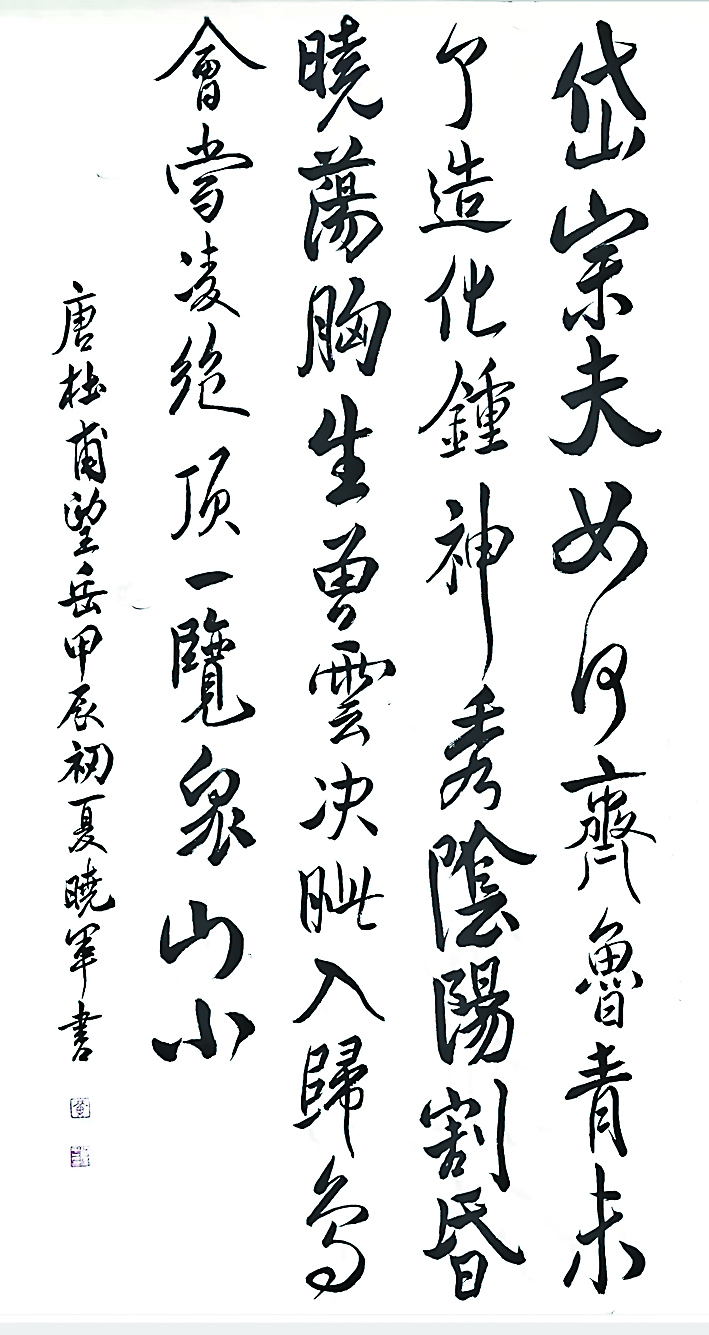 岱宗夫如何齊魯青未
了造化鍾神秀陰陽割昏
曉蕩胸生曾雲决眦入歸鳥
會當凌绝顶一覽衆山小
唐杜甫望岳甲辰初夏曉軍書